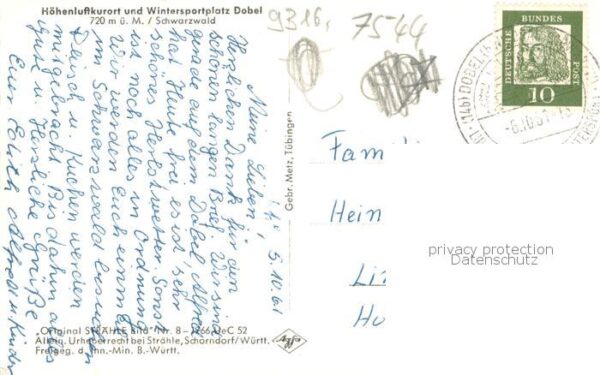 Höhenluftkurort und Wintersportplatz Dobel
720 m ü. M. / Schwarzwald
9316,
7544
DEUTSCHE BUNDESPOST
10
(14b) DOBEL
-6.10.61-
5.10.61
Meine Lieben!
Herzlichen Dank für den
schönen langen Brief. Wir sind
gerade auf dem Dobel. Alfred
hat Heute frei es ist sehr
schönes Herbstwetter. Sonst
ist noch alles in Ordnung
Wir werden Euch einmal
im Schwarzwald besuchen
Fleisch u. Kuchen werden
mitgebracht. Bis dahin alles
Gute u. Herzliche Grüße
Eure Edith Alfred u. Kinder
Gebr. Metz, Tübingen
Fam
Hein
Li
Ho
privacy protection
Datenschutz
„Original STRÄHLE Bild" Nr. 8-
Allein. Urheberrecht bei Strähle, Schorndorf/Württ.
Freigeg. d. Inn.-Min. B.-Württ.
Agfa